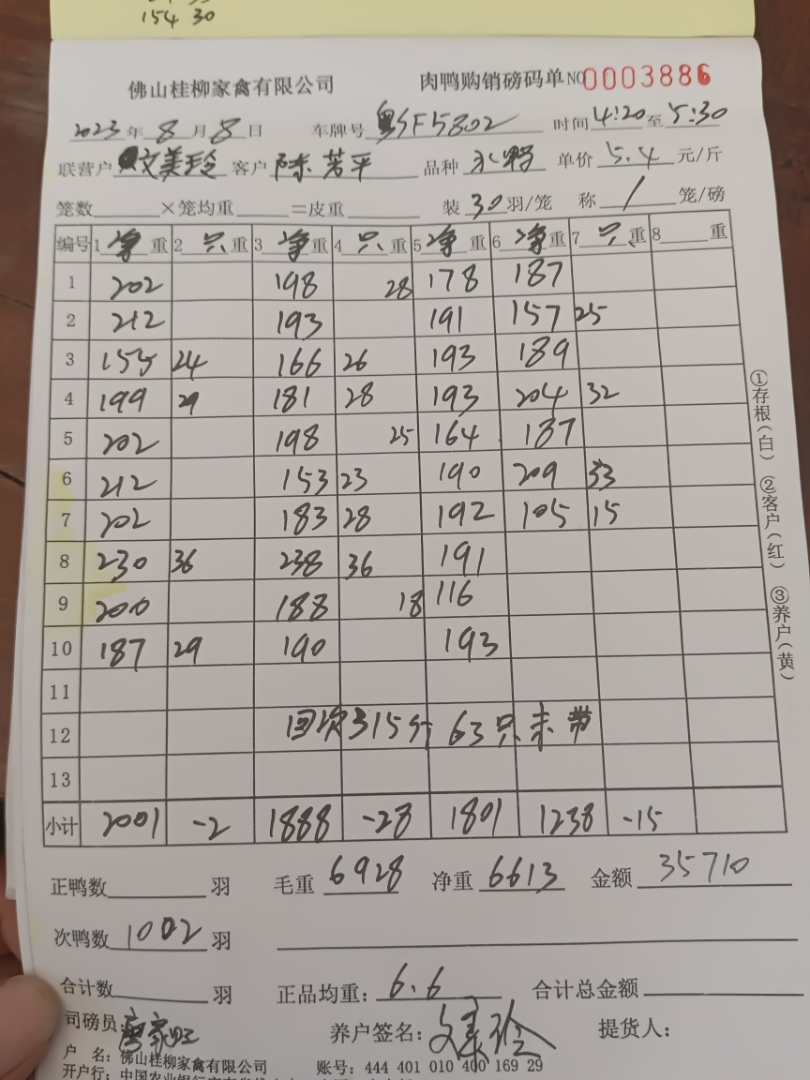 154 30
佛山桂柳家禽有限公司 肉鸭购销磅码单 NO 0003886
2023年8月8日 车牌号 粤SF5802 时间 4:20 至 5:30
联营户 文美玲 客户 陈芳平 品种 水鸭 单价 5.4 元/斤
笼数 ×笼均重 =皮重 装 30 羽/笼 称 1 笼/磅
编号 1 净 重 2 只 重 3 净 重 4 只 重 5 净 重 6 净 重 7 只 重 8 重
1 202 198 28 178 187
2 212 193 191 157 25
3 155 24 166 26 193 189
4 199 29 181 28 193 204 32
5 202 198 25 164 187
6 212 153 23 190 209 33
7 202 183 28 192 105 15
8 230 36 238 36 191
9 200 188 18 116
10 187 29 190 193
11
12 回次315斤 63只未带
13
小计 2001 -2 1888 -28 1801 1238 -15
正鸭数 羽 毛重 6928 净重 6613 金额 35710
次鸭数 1002 羽
合计数 羽 正品均重: 6.6 合计总金额
司磅员: 养户签名: 文美玲 提货人:
户 名: 佛山桂柳家禽有限公司 账号: 444 401 010 400 169 29
开户行: 中国农业银行
①存根(白) ②客户(红) ③养户(黄)